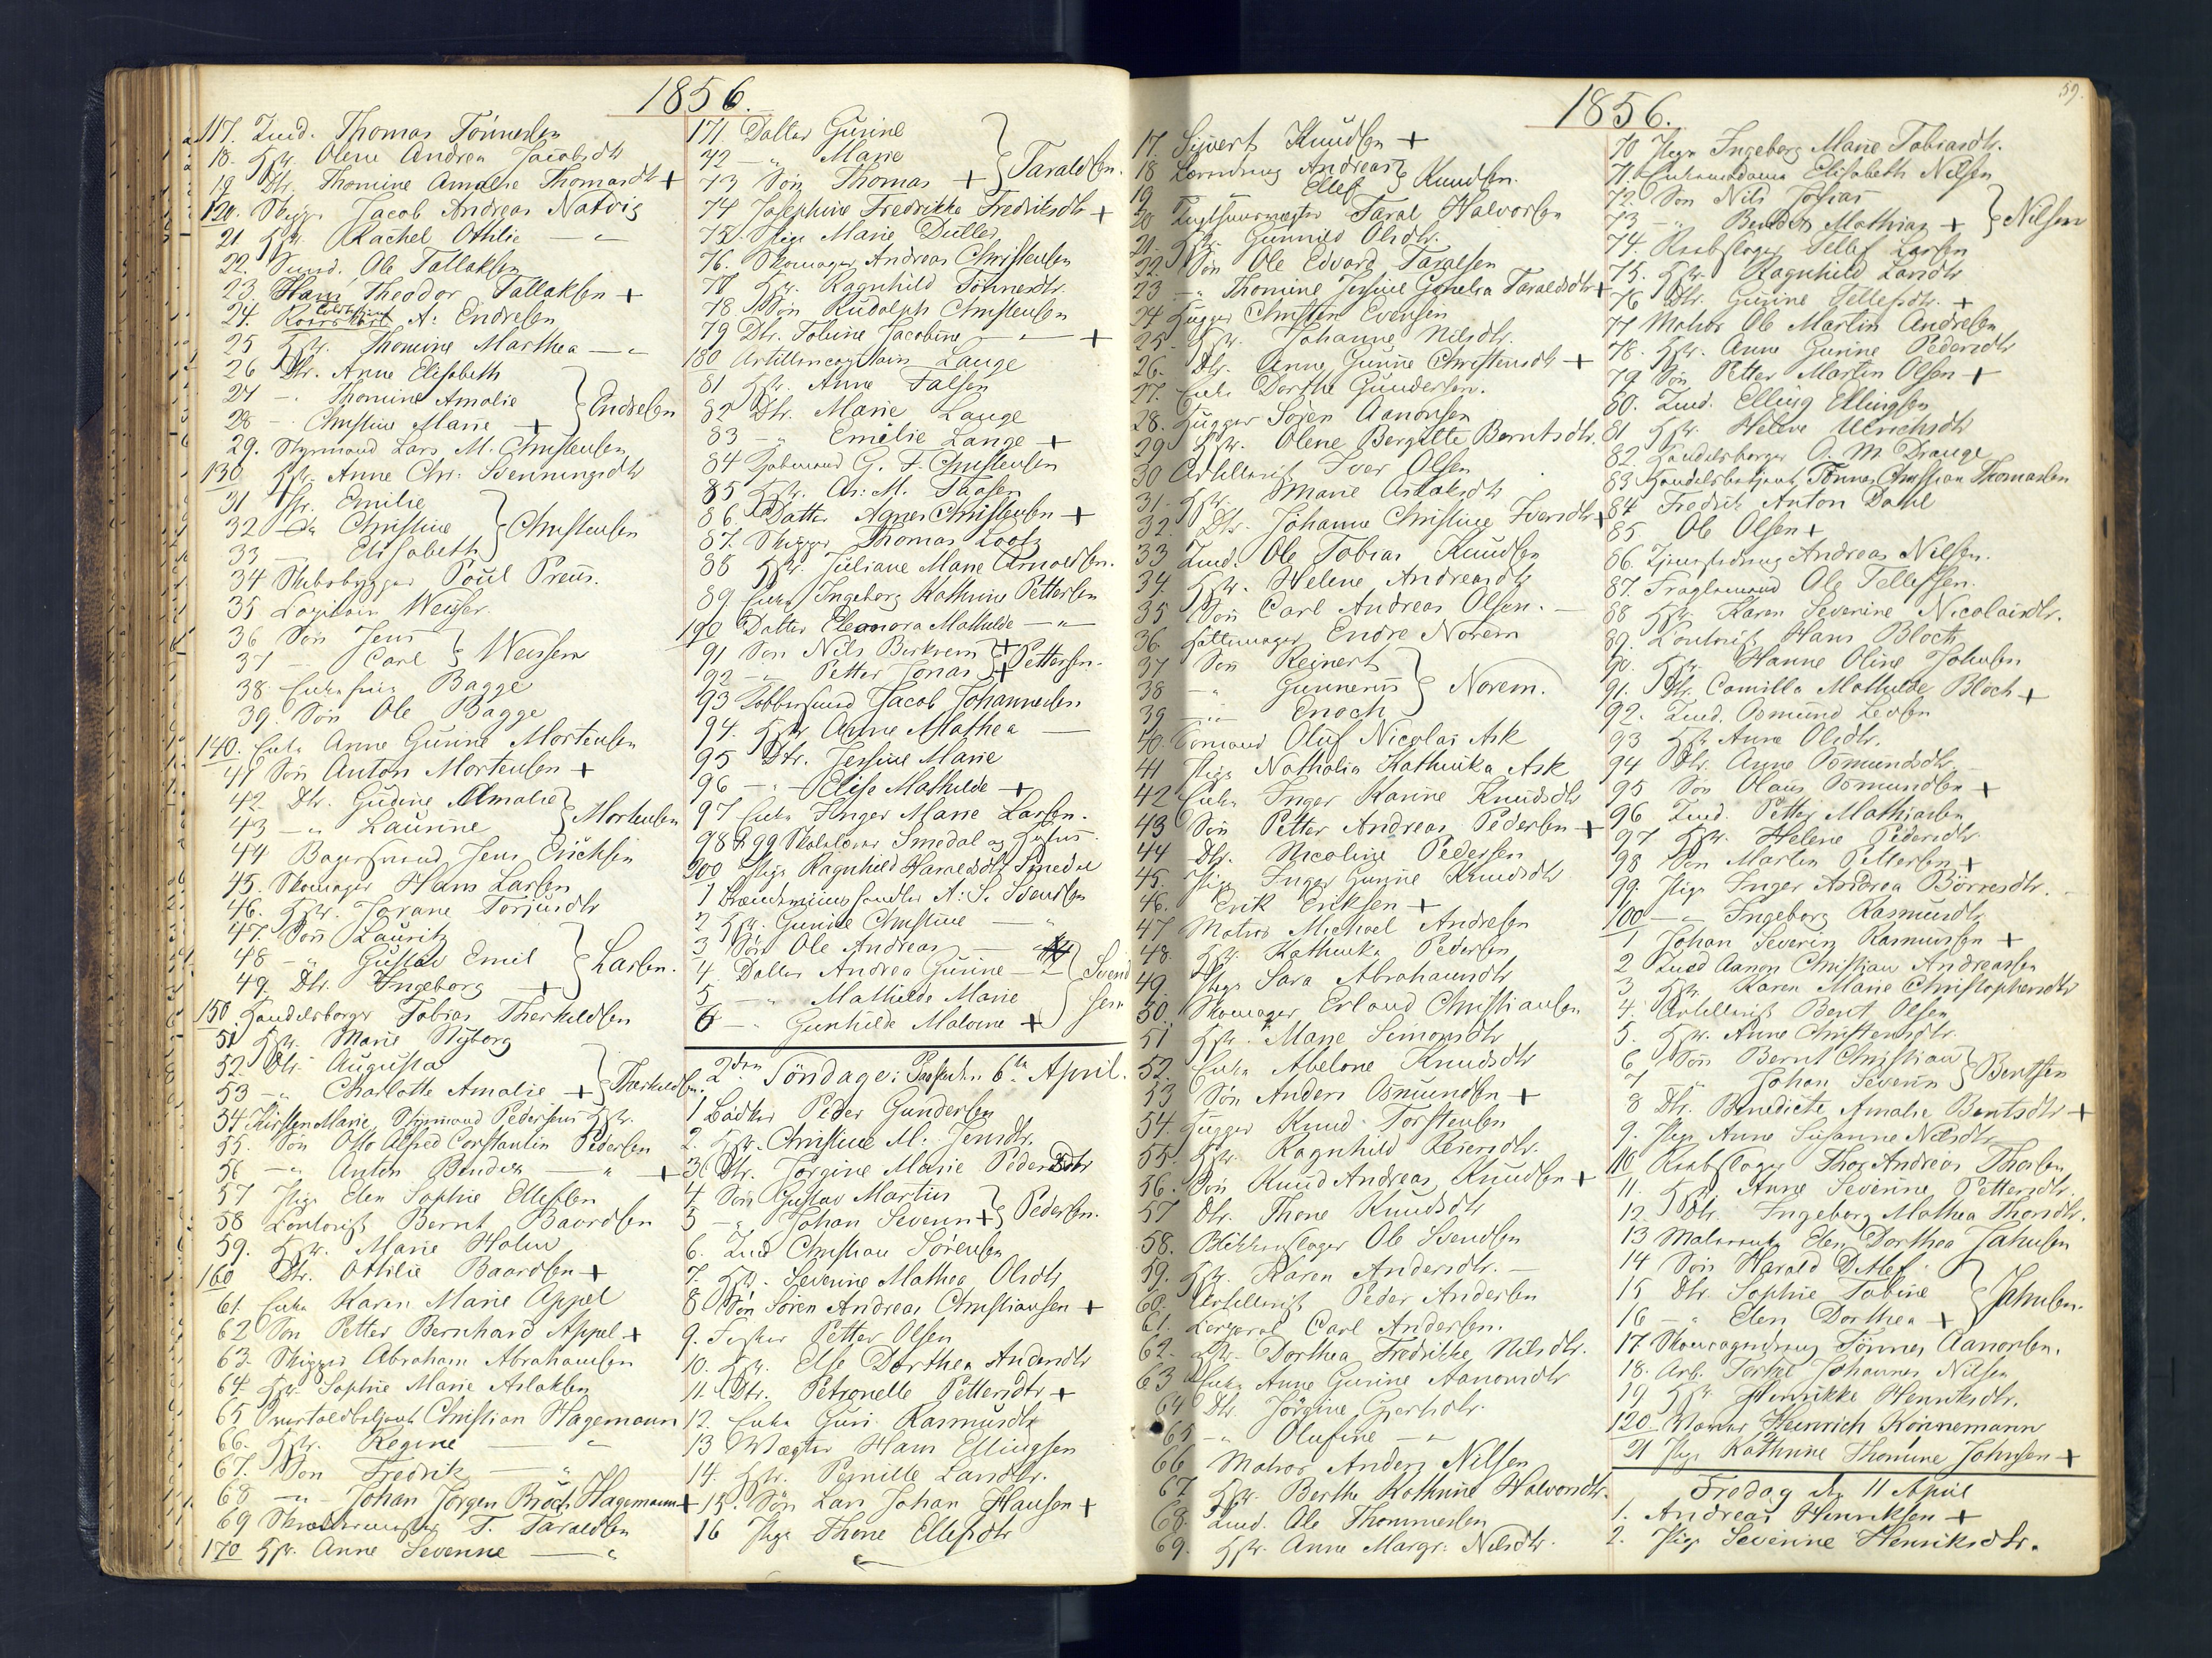 1856.
117. Ind. Thomas Tönnesen
18. Hstr. Olene Andrea Jacobsdtr
19 Dtr. Thomine Amalie Thomasdtr +
120. Skipp. Jacob Andreas Natvig
21. Hstr. Rachel Othilie — " —
22. Svend. Ole Tallaksen
23. Hans Theodor Tallaksen +
24. A. Endresen
25 Hstr. Thomine Marthea — " —
26 Dtr. Anne Elisabeth
27 — " Thomine Amalie } Endresen
28 — Christine Marie +
29. Styrmand Lars M. Christensen
130 Hstr. Anne Chr. Henningsdtr
31 Dtr. Emilie
32 Do Christine } Christensen
33 — Elisabeth
34 Skibsbygger Poul Preus.
35. Kapitain Weisser.
36 Søn Jens
37 — Carl } Weissern
38. Enkefru Bagge
39. Søn Ole Bagge
140. Enke Anne Gurine Mortensen
41 Søn Anton Mortensen +
42. Dtr. Gudine Amalie
43 — " Laurine } Mortensen
44 Bagersvend Jens Ericksen
45. Skomager Hans Larsen
46. Hstr. Jorane Torjusdtr
47. Søn Lauritz
48 — " Gustav Emil } Larsen.
49 Dtr. Ingeborg +
150. Handelsborger Tobias Therkildsen
51 Hstr. Marie Nyborg
52. Dtr. Augusta
53 — " Charlotte Amalie + } Therkildsen.
54 Kirsten Marie, Styrmand Pedersens Hstr.
55. Søn Otto Alfred Constantin Pedersen
56 — " Anton — " +
57 Pige Elen Sophie Ellefsen
58 Contorist Bernt Baardsen
59. Hstr. Marie Holm
160 Dtr. Othilie Baardsen +
61. Enke Karen Marie Appel
62 Søn Petter Bernhard Appel +
63. Skipper Abraham Abrahamsen
64. Hstr. Sophie Marie Aslaksen
65 Overtoldbetjent Christian Hagemann
66. Hstr. Regine — "
67. Søn Fredrik — "
68 — " Johan Jørgen Broch Hagemann +
69 T. Taraldsen
170 Hstr. Anne Severine — "
171 Datter Gurine
72 — " Marie
73 Søn Thomas + } Taraldsen.
74 Josephine Fredrikke Fredriksdtr +
75. Pige Marie Duller
76. Skomager Andreas Christensen
77 Hstr. Ragnhild Tönnesdtr.
78. Søn Rudolph Christensen
79 Dtr. Tobine Jacobine — " — +
180 Artillericaptain Lange
81 Hstr. Anne Falsen
82 Dtr. Marie Lange
83 — " Emilie Lange +
84 G. F. Christensen
85 Hstr. An. M. Taasen
86. Datter Agnes Christensen +
87. Skipper Thomas Loots
88 Hstr. Juliane Marie Arnoldsen.
89 Enke Ingeborg Kathrine Pettersen
190 Datter Eleonora Mathilde — " —
91 Søn Nils Birkrem +
92 — " Petter Jonas + } Pettersen.
93 Kobbersmed Jacob Johannesen
94. Hstr Anne Mathea —
95 Dtr. Jessine Marie
96 — " — Elise Mathilde +
97 Enke Inger Marie Larsen.
98 & 99 Skolelærer Smedal og Hustru.
200 Pige Ragnhild Haraldsdtr Smedal
1 Brændeviinshandler A. S. Svendsen
2 Hstr. Gunilde Christine — "
3 Søn Ole Andreas — "
4. Datter Andrea Gurine — " } Svend
5 — " Mathilde Marie } sen
6 — " Gunhilde Malvine +
2den Söndag e: Paaske d. 6te April.
1 Bödker Peder Gundersen
2. Hstr. Christine M. Jensdtr.
3 Dtr. Jorgine Marie Pedersdtr
4. Søn Gustav Martin
5 — " Johan Severin + } Pedersen.
6. Ind Christian Sörensen
7. Hstr. Severine Mathea Olsdtr
8 Søn Sören Andreas Christiansen +
9. Fisker Petter Olsen
10. Hstr. Else Dorthea Andersdtr
11. Dtr. Petronelle Pettersdtr +
12. Enke Guri Rasmusdtr
13 Vægter Hans Ellingsen
14. Hstr. Pernille Larsdtr.
15. Søn Lars Johan Hansen +
16 Pige Thone Ellefsdtr
59.
1856.
17. Sivert Knudsen +
18 Andreas
19 Ellef } Knudsen.
20 Taral Halvorsen
21. Hstr. Gunnild Olsdtr.
22. Søn Ole Edvard Taralsen
23 — " Thomine Jessine Gonelia Taraldsdtr +
24 Hugger Christen Evensen
25 Hstr. Johanne Nilsdtr.
26. Dtr. Anne Gurine Christensdtr +
27. Enke Dorthe Gundersen.
28. Hugger Sören Aanonsen
29 Hstr. Olene Bergitte Berntsdtr.
30 Artillerist Iver Olsen
31. Hstr. Marie Aslaksdtr
32. Dtr. Johanne Christine Iversdtr +
33 Ind. Ole Tobias Knudsen
34. Hstr. Helene Andreasdtr
35 Søn Carl Andreas Olsen. —
36. Endre Norem
37 Søn Reinert
38 — " Gunnerius } Norem.
39 — " Enoch
40. Formand Oluf Nicolai Ask
41 Pige Nathalia Kathinka Ask
42 Enke Inger Karine Knudsdtr
43 Søn Petter Andreas Pedersen +
44 Dtr. Nicoline Pedersen
45. Pige Inger Gurine Knudsdtr
46. Erik Eriksen +
47 Matros Michael Andresen
48. Hstr. Kathinka Pedersen
49. Pige Sara Abrahamsdtr
50. Skomager Erland Christiansen
51 Hstr. Marie Simonsdtr
52. Enke Abelone Knudsdtr
53 Søn Anders Osmundsen +
54. Hugger Knud Torstensen
55 Hstr. Ragnhild Reiersdtr.
56. Søn Knud Andreas Knudsen +
57 Dtr. Thone Knudsdtr
58. Blikkenslager Ole Svendsen
59. Hstr. Karen Andersdtr. —
60. Artillerist Peder Andersen
61. Corporal Carl Andersen.
62. Hstr. Dorthea Fredrikke Nilsdtr.
63 Enke Anne Gurine Aanonsdtr
64 Dtr. Jörgine Gjertsdtr.
65 — " Olufine — "
66 Matros Anders Nilsen
67 Hstr. Berthe Kathrine Halvorsdtr.
68. Ind. Ole Thommesen
69. Hstr. Anne Margr. Nilsdtr.
70 Pige Ingeborg Marie Tobiasdtr.
71. Enkemadame Elisabeth Nilsen
72. Søn Nils Tobias
73 — " Mathias + } Nilsen
74 Rebslager Tellef Larsen
75. Hstr. Ragnhild Larsdtr
76 Dtr. Gurine Tellefsdtr. +
77 Matros Ole Martin Andresen
78. Hstr. Anne Gurine Pedersdtr
79 Søn Petter Martin Olsen +
80. Ind. Elling Ellingsen
81 Hstr. Helene Ulrichsdtr
82. Handelsborger O. M. Drange
83 Handelsbetjent Tönnes Christian Thomassen
84 Fredrik Anton Dahl
85. Ole Olsen +
86. Andreas Nilsen.
87. Fragtemand Ole Tellefsen.
88 Hstr. Karen Severine Nicolaisdtr.
89. Contorist Hans Bloch
90. Hstr. Hanne Oline Johnsen
91. Dtr. Camilla Mathilde Bloch +
92. Ind. Osmund Levsen
93 Hstr Anne Olsdtr.
94 Dtr. Anne Osmundsdtr.
95 Søn Olaus Osmundsen +
96 Ind. Petter Mathiasen
97 Hstr. Helene Pedersdtr
98 Søn Martin Pettersen +
99. Pige Inger Andrea Börresdtr.
100 — " Ingeborg Rasmusdtr.
1 Johan Severin Rasmussen +
2 Ind Aanon Christian Andreassen
3 Hstr. Karen Marie Christophersdtr
4. Artillerist Bent Olsen
5. Hstr. Anne Christensdtr.
6 Søn Bernt Christian
7 " Johan Severin } Bentsen
8 Dtr. Benedicte Amalie Bentsdtr +
9. Pige Anne Susanne Nilsdtr
110 Rebslager Thor Andreas Thorsen
11. Hstr. Anne Severine Pettersdtr.
12. Dtr. Ingeborg Mathea Thorsdtr.
13 Elen Dorthea Jahnsen
14 Søn Harald Ditlef
15 Dtr. Sophie Tobine } Jahnsen.
16 — " Elen Dorthea +
17 Tönnes Aanonsen.
18. Arb. Torkel Johannes Nilsen
19 Hstr. Henrikke Henriksdtr.
120 Heinrich Könnemann
21 Pige Kathrine Thomine Johnsen +
Fredag den 11 April
1. Andreas Henriksen +
2. Pige Severine Henriksdtr.